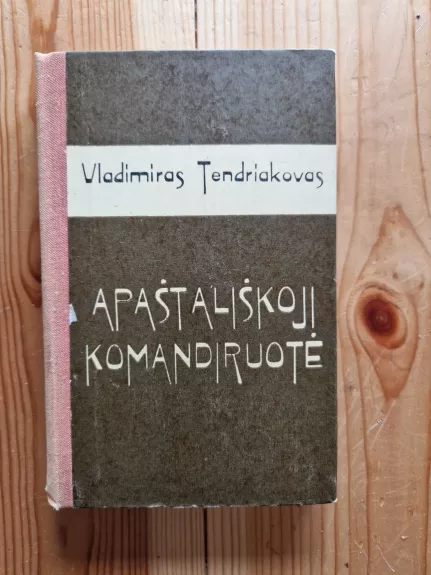 Vladimiras Tendriakovas
APAŠTALIŠKOJI
KOMANDIRUOTĖ